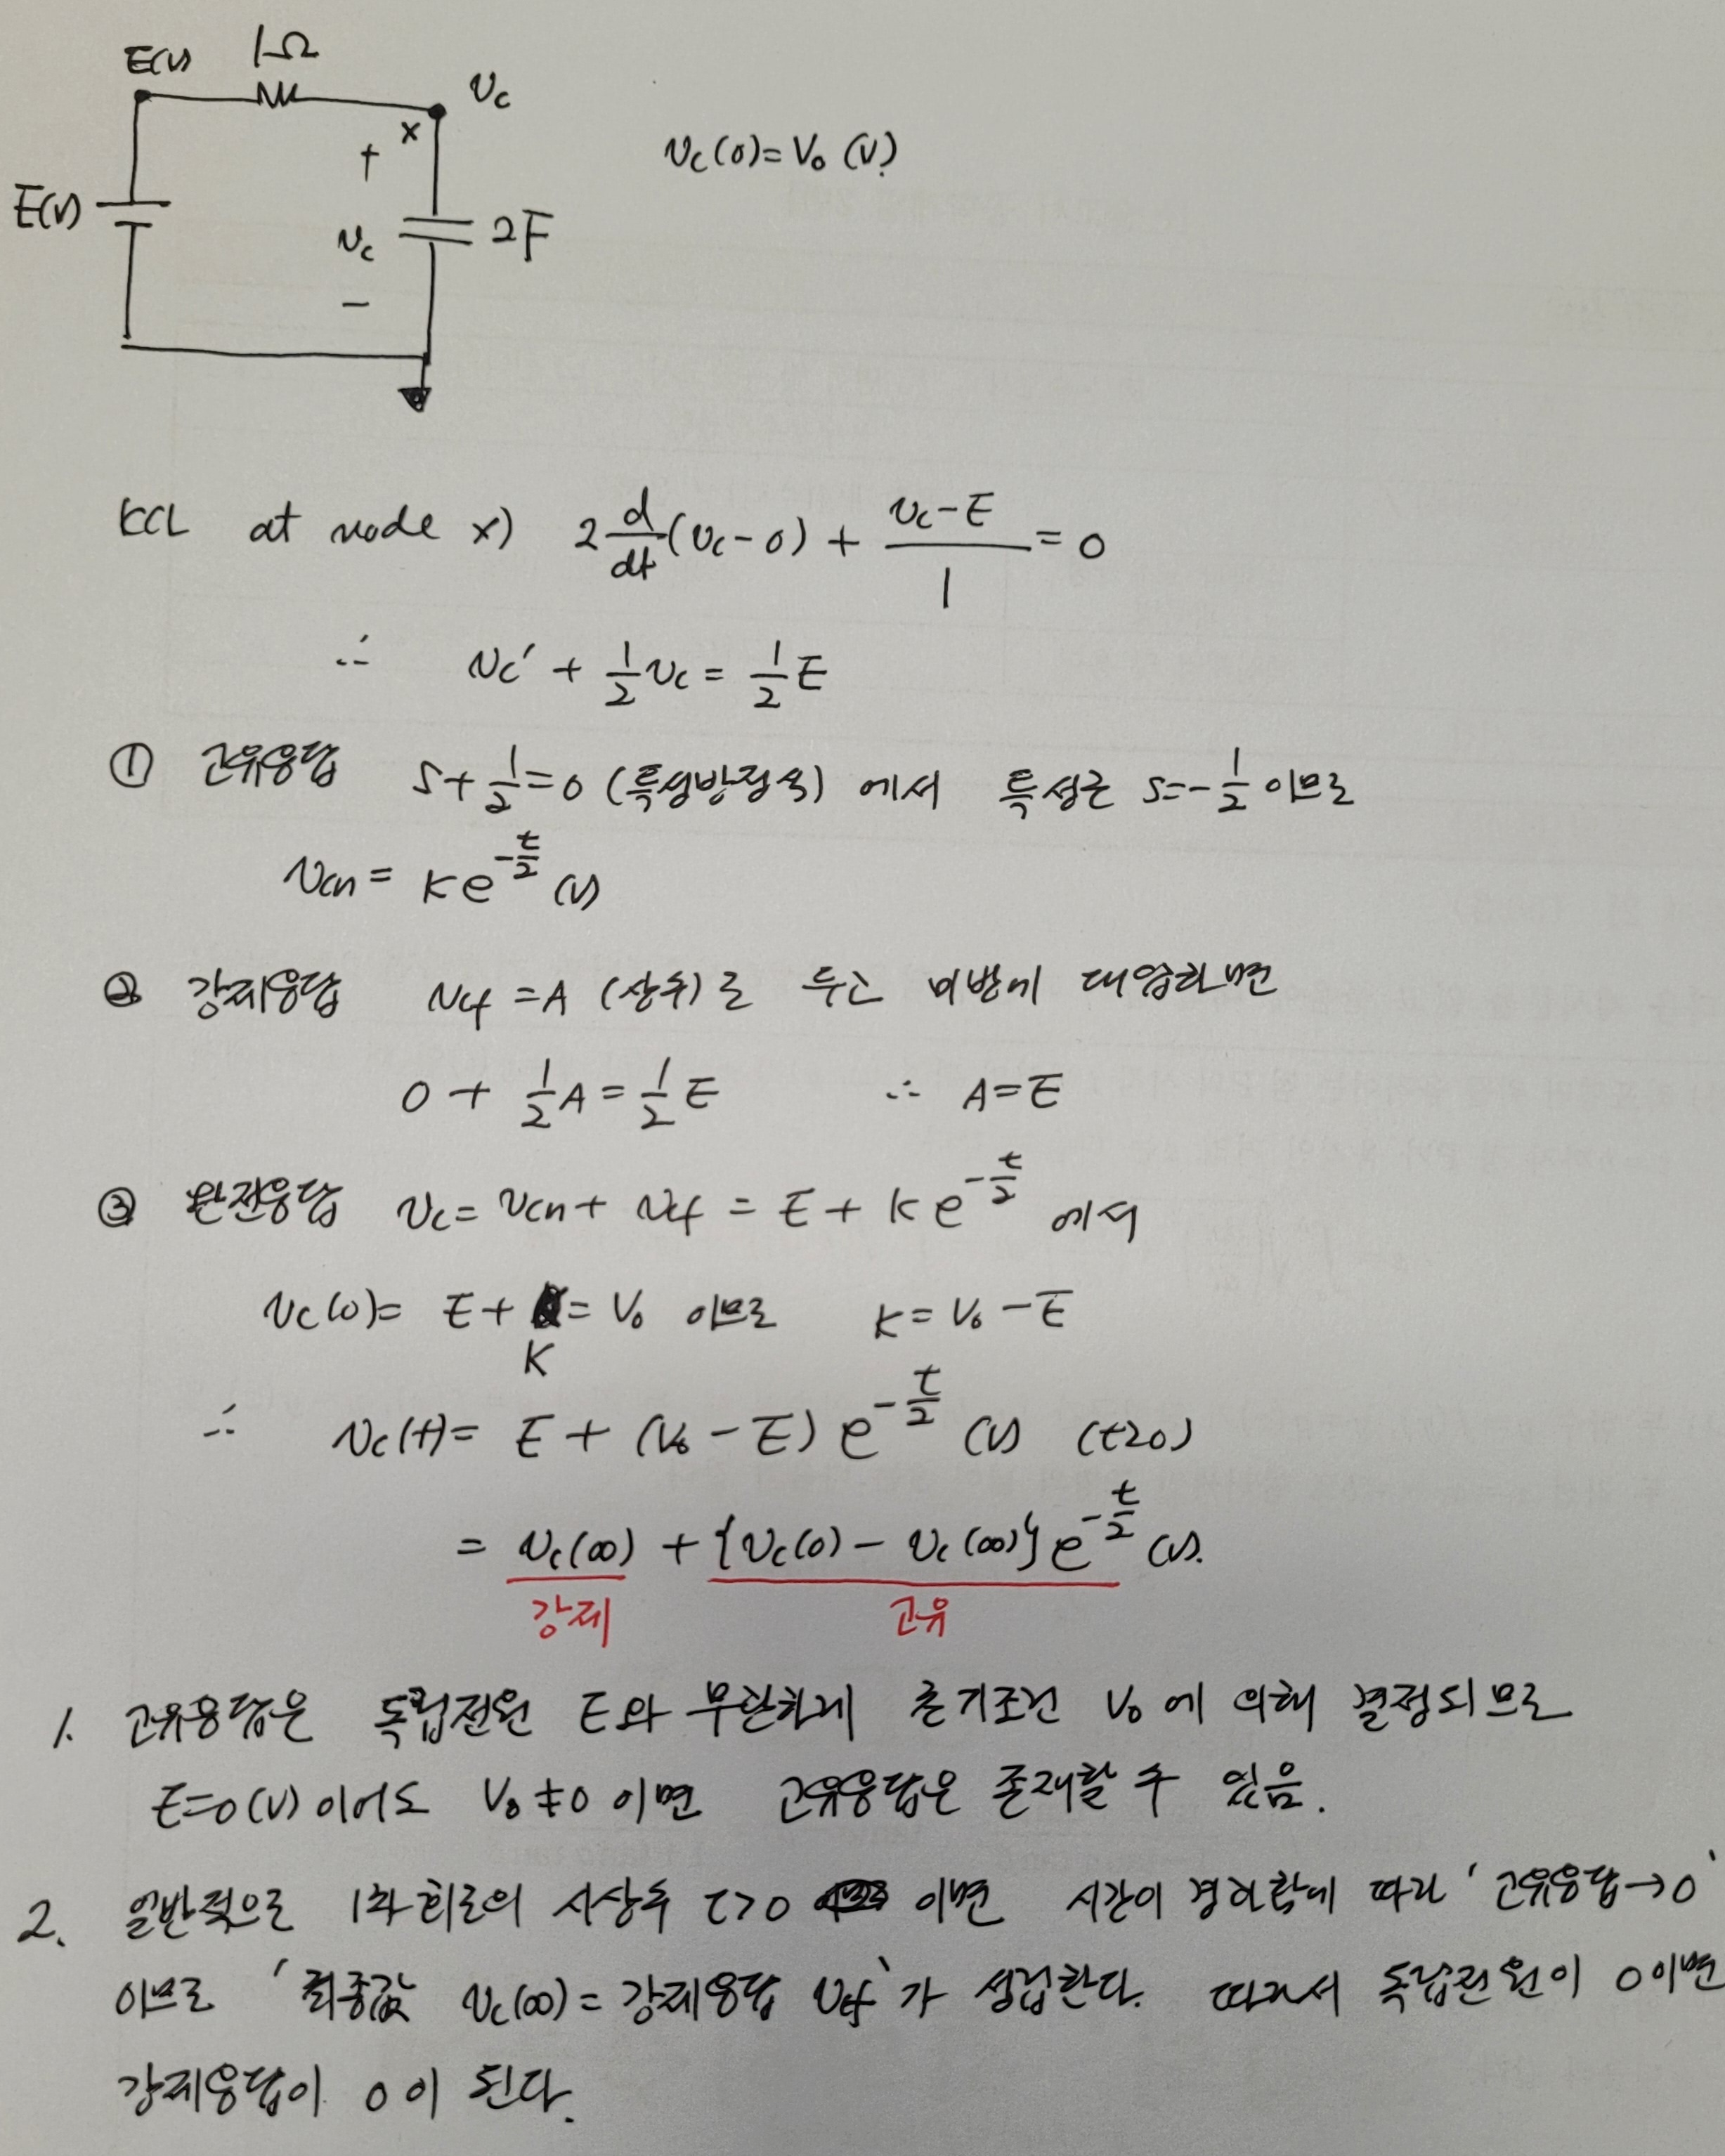 E(V) 1Ω v_c
x
+
v_c(0)=V₀ (V)
E(V) v_c 2F
−
KCL at node x) 2 d/dt (v_c-0) + (v_c-E)/1 = 0
∴ v_c' + 1/2 v_c = 1/2 E
① 고유응답 s+1/2=0 (특성방정식) 에서 특성근 s=-1/2 이므로
v_cn = Ke^(-t/2) (V)
② 강제응답 v_cf = A (상수)로 두고 미방에 대입하면
0 + 1/2 A = 1/2 E ∴ A=E
③ 완전응답 v_c = v_cn + v_cf = E + Ke^(-t/2) 에서
v_c(0)= E + K = V₀ 이므로 K = V₀ - E
∴ v_c(t)= E + (V₀ - E) e^(-t/2) (V) (t≥0)
= v_c(∞) + {v_c(0) - v_c(∞)} e^(-t/2) (V).
강제 고유
1. 고유응답은 독립전원 E와 무관하게 초기조건 V₀에 의해 결정되므로
E=0(V)이어도 V₀≠0 이면 고유응답은 존재할 수 있음.
2. 일반적으로 1차 회로의 시상수 τ>0 이면 시간이 경과함에 따라 '고유응답→0'
이므로 '최종값 v_c(∞) = 강제응답 v_cf'가 성립한다. 따라서 독립전원이 0이면
강제응답이 0이 된다.